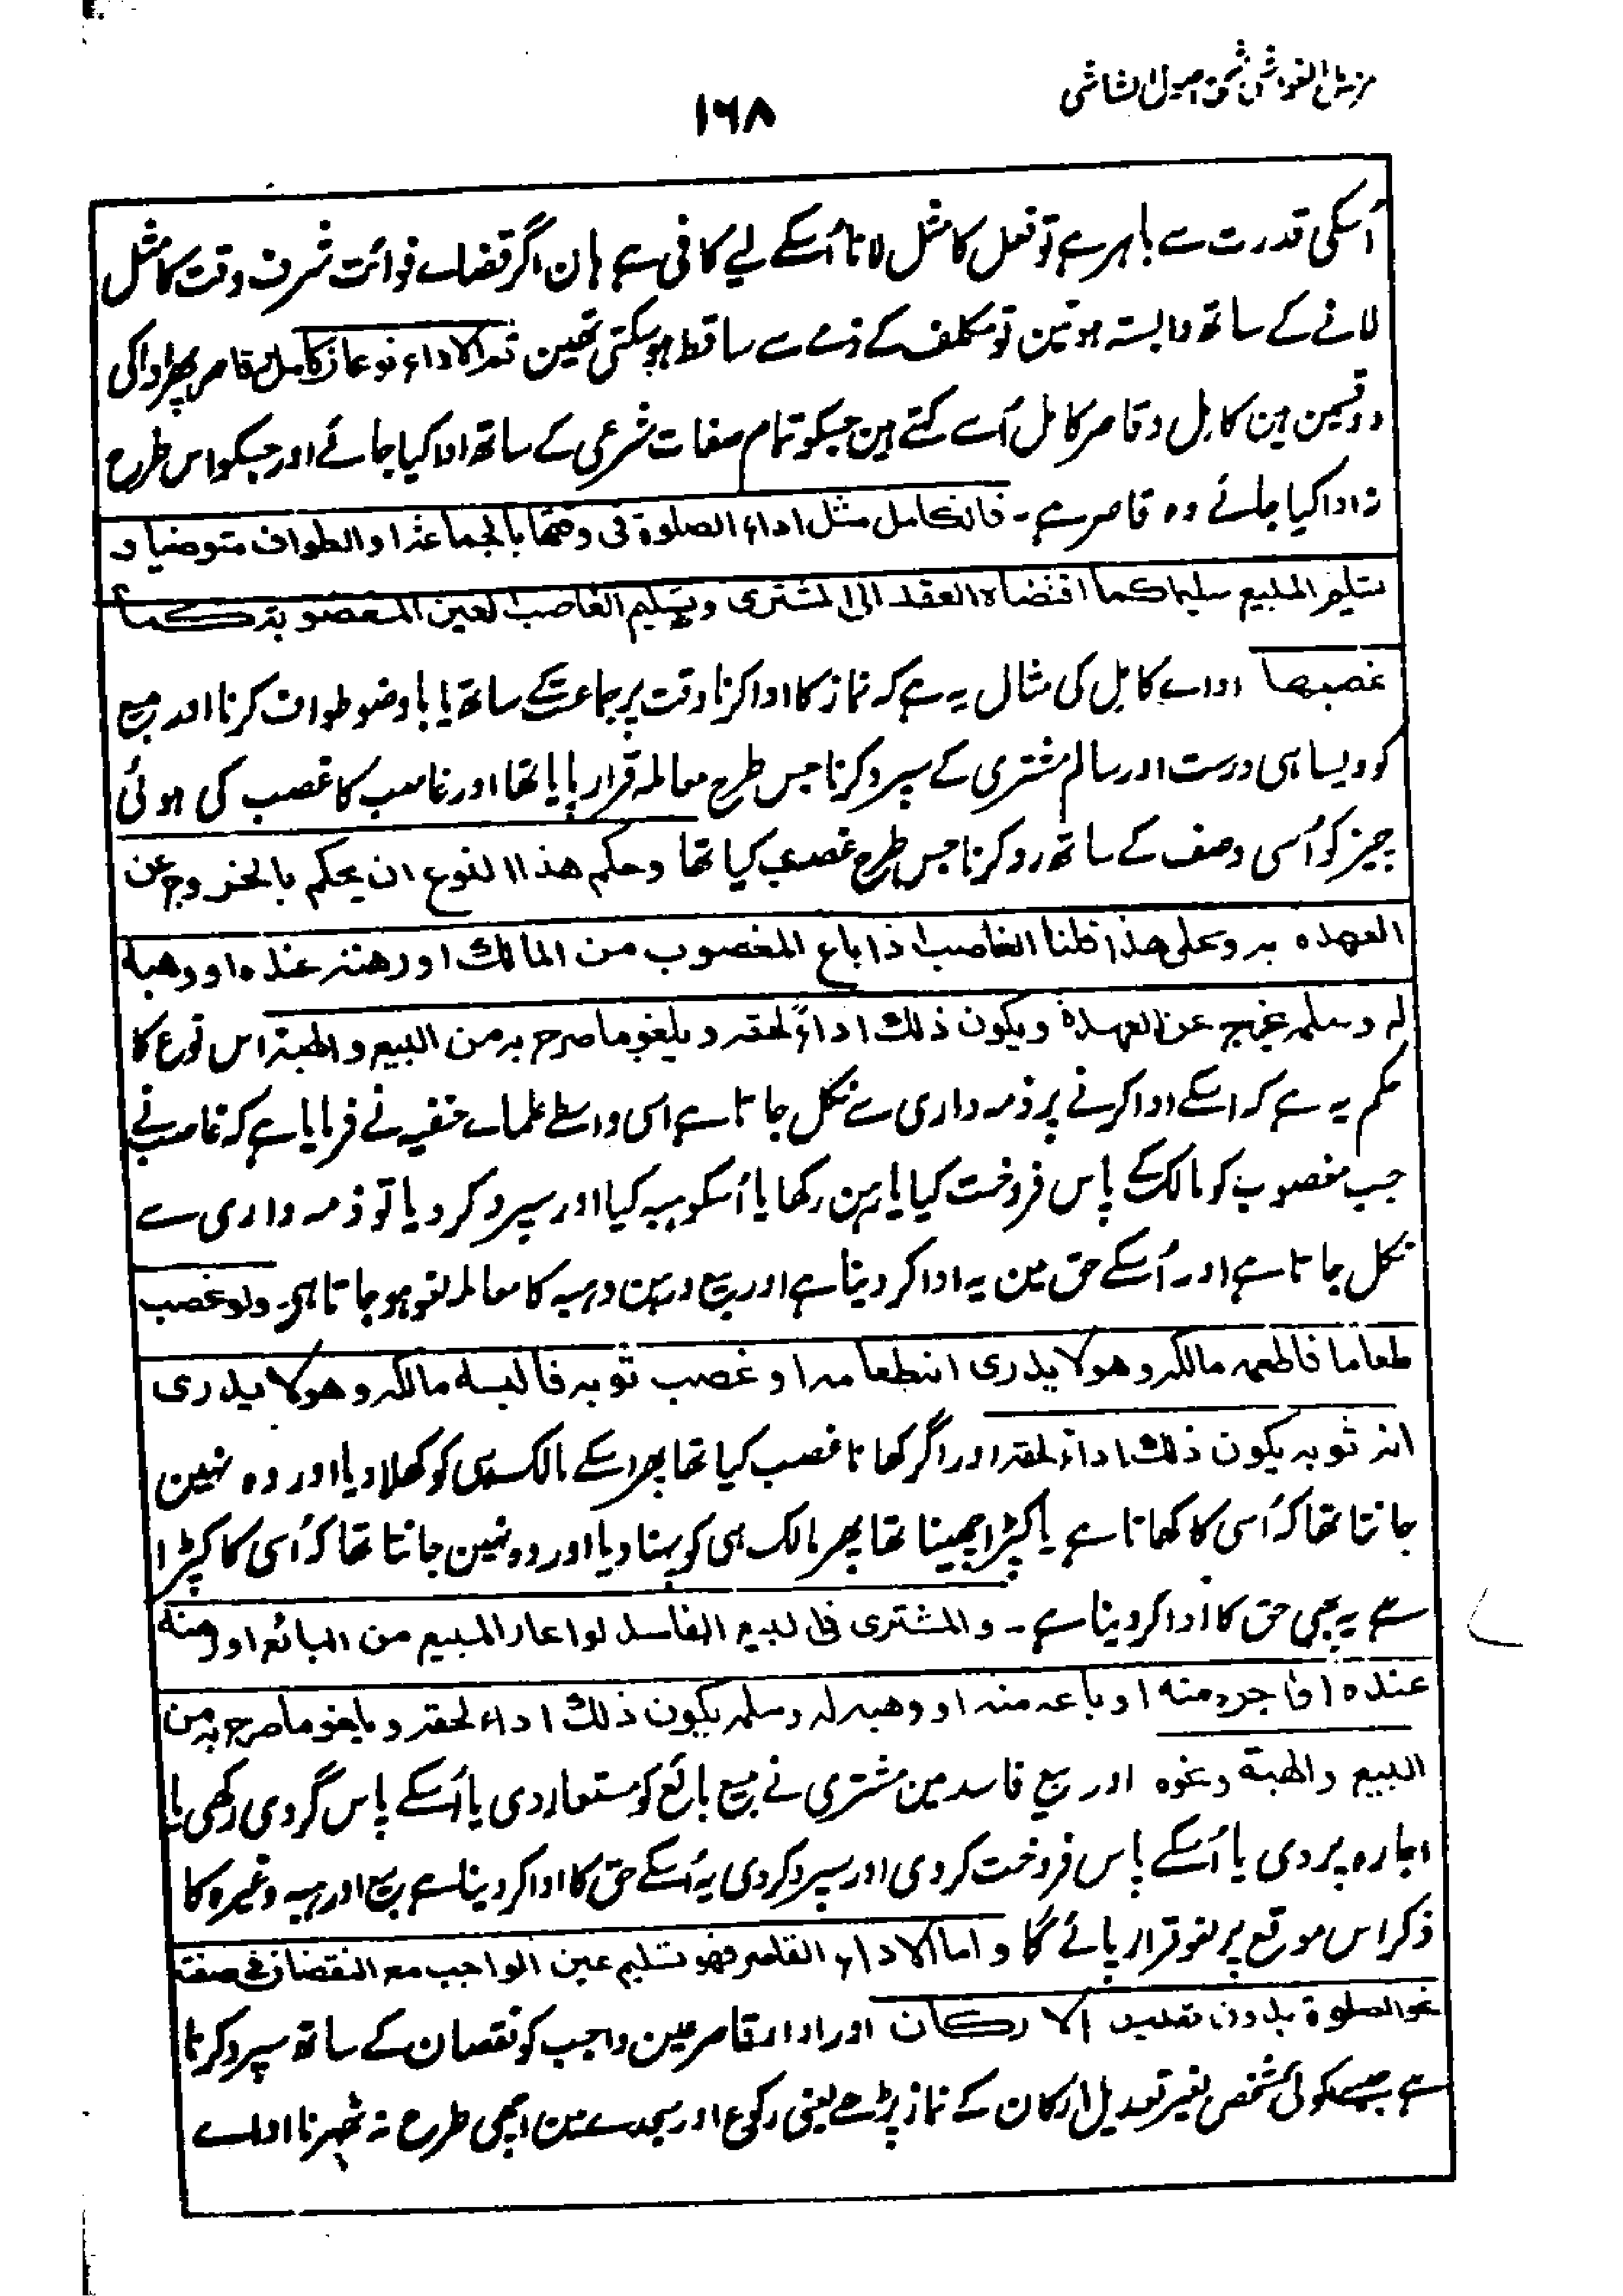 مزیل الغواشی شرح اصول الشاشی
۱۶۸
اُسکی قدرت سے باہر ہے تو فعل کا مثل لانا اُسکے لیے کافی ہے ہان اگر قضاے فوائت شرف وقت کا مثل
لانے کے ساتھ وابستہ ہوتین تو مکلف کے ذمے سے ساقط ہو سکتی تھین ثم الاداء نوعان کامل و قاصر پھر ادا کی
دو قسمین ہین کامل و قاصر کامل اُسے کہتے ہین جسکو تمام صفات شرعی کے ساتھ ادا کیا جائے اور جسکو اس طرح
نہ ادا کیا جائے وہ قاصر ہے۔ فالکامل مثل اداء الصلوة فی وقتها بالجماعة او الطواف متوضیا و
تسلیم المبیع سلیما کما اقتضاه العقد الی المشتری و تسلیم الغاصب العین المغصوبة کما
غصبها اداے کامل کی مثال یہ ہے کہ نماز کا ادا کرنا وقت پر جماعت کے ساتھ یا با وضو طواف کرنا اور مبیع
کو ویسا ہی درست اور سالم مشتری کے سپرد کرنا جس طرح معاملہ قرار پایا تھا اور غاصب کا غصب کی ہوئی
چیز کو اُسی وصف کے ساتھ رد کرنا جس طرح غصب کیا تھا وحکم هذا النوع ان یحکم بالخروج عن
العهده به وعلی هذا قلنا الغاصب اذا باع المغصوب من المالك او رهنه عنده او وهبه
له وسلمه یخرج عن العهدة ویکون ذلك اداءً لحقه ویلغو ما صرح به من البیع والهبة اس نوع کا
حکم یہ ہے کہ اسکے ادا کرنے پر ذمہ داری سے نکل جاتا ہے اسی واسطے علماے حنفیہ نے فرمایا ہے کہ غاصب نے
جب مغصوب کو مالک کے پاس فروخت کیا یا رہن رکھا یا اُسکو ہبہ کیا اور سپرد کر دیا تو ذمہ داری سے
نکل جاتا ہے اور اُسکے حق مین یہ ادا کر دینا ہے اور بیع و رہن و ہبہ کا معاملہ لغو ہو جاتا ہی۔ ولو غصب
طعاما فاطعمه مالکه وهو لا یدری انه طعامه او غصب ثوبه فالبسه مالکه وهو لا یدری
انه ثوبه یکون ذلك اداء لحقه اور اگر کھانا غصب کیا تھا پھر اسکے مالک ہی کو کھلا دیا اور وہ نہین
جانتا تھا کہ اُسی کا کھانا ہے یا کپڑا چھینا تھا پھر مالک ہی کو پہنا دیا اور وہ نہین جانتا تھا کہ اُسی کا کپڑا
ہے یہ بھی حق کا ادا کر دینا ہے۔ والمشتری فی البیع الفاسد لو اعار المبیع من البائع او رهنه
عنده او اجره منه او باعه منه او وهبه له وسلمه یکون ذلك اداء لحقه و یلغو ما صرح به من
البیع والهبة ونحوه اور بیع فاسد مین مشتری نے مبیع بائع کو مستعار دی یا اُسکے پاس گروی رکھی یا
اجارہ پر دی یا اُسکے پاس فروخت کر دی اور سپرد کر دی یہ اُسکے حق کا ادا کر دینا ہے بیع اور ہبہ وغیرہ کا
ذکر اس موقع پر لغو قرار پائے گا واما الاداء القاصر فهو تسلیم عین الواجب مع النقصان فی صفته
نحو الصلوة بدون تعدیل الارکان اور اداے قاصر مین واجب کو نقصان کے ساتھ سپرد کرنا
ہے جیسے کوئی شخص بغیر تعدیل ارکان کے نماز پڑھے یعنی رکوع اور سجدے مین اچھی طرح نہ ٹھہرنا اداے